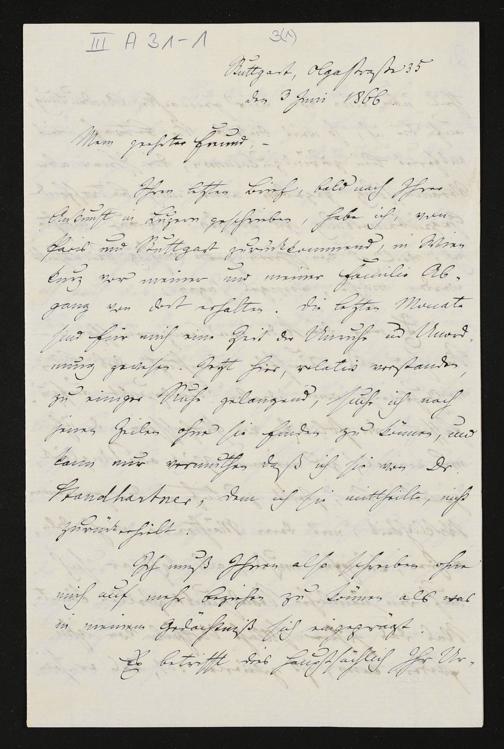 III A 31-1
3(1)
Stuttgart, Olgastraße 35
den 3 Juni 1866
Mein geehrter Freund, –
Ihren letzten Brief, bald nach Ihrer
Ankunft in Luzern geschrieben, habe ich, von
Paris und Stuttgart zurückkommend, in Wien
kurz vor meiner und meiner Familie Ab-
gang von dort erhalten. Die letzten Monate
sind für mich eine Zeit der Unruhe und Unord-
nung gewesen. Jetzt hier, relativ verstanden,
zu einiger Ruhe gelangend, suche ich nach
jenen Zeilen ohne sie finden zu können, und
kann nur vermuthen daß ich sie von Dr
Standhartner, dem ich sie mittheilte, nicht
zurückerhielt.
Ich muß Ihnen also schreiben ohne
mich auf mehr beziehen zu können als was
in meinem Gedächtniß sich eingeprägt.
Es betrifft dies hauptsächlich Ihr Ur-